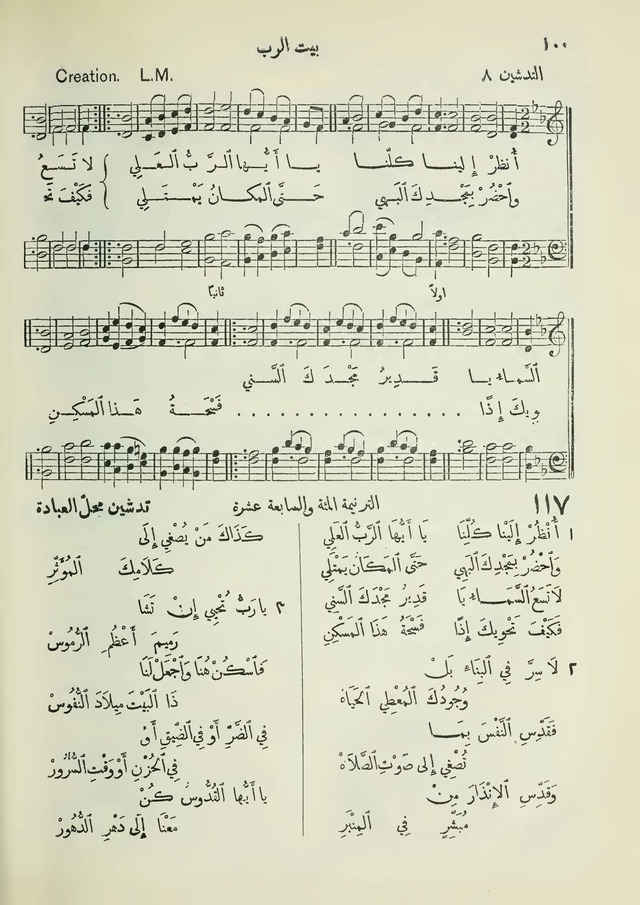 ١٠٠
بيت الرب
التدشين ٨
Creation. L.M.
أُنظرْ إلينـا كلّنـا يــا أَيُّهـا الـرَّبُّ الـعَـلـي لا تَسَعُ
وَاحْضُرْ بِمَجْدِكَ البَهي حَتَّى المكـانُ يَمْـتَـلي فَكَيْفَ تَحْـ
أولاً ثانيًا
السَّماء يـا قَـدِيرُ مَجْدَكَ السَّني
ـويكَ إِذًا فَسْحَةُ هَـذا المَسْكِنِ
١١٧ الترنيمة المئة والسابعة عشرة تدشين محلّ العبادة
١ أُنْظُرْ إِلَيْنا كُلِّنَا يَا أَيُّهَا الرَّبُّ العَلِي
وَاحْضُرْ بِمَجْدِكَ البَهِي حَتَّى المَكَانُ يَمْتَلِي
لَا تَسَعُ السَّمَاءُ يَا قَدِيرُ مَجْدَكَ السَّنِي
فَكَيْفَ تَحْوِيكَ إِذًا فَسْحَةُ هَذَا المَسْكِنِ
٢ لَا سِرَّ فِي البِنَاءِ بَلْ
وُجُودُكَ المُعْطِي الحَيَاهْ
فَقَدِّسِ النَّفْسَ بِمَا
تُصْغِي إِلَى صَوْتِ الصَّلَاهْ
وَقَدِّسِ الإِنْذَارَ مِنْ
مُبَشِّرٍ فِي المِنْبَرِ
كَذَاكَ مَنْ يُصْغِي إِلَى
كَلَامِكَ المُؤَثِّرِ
٣ يا رَبُّ تُحْيِي إِنْ تَشَا
رَمِيمَ أَعْظُمِ الرُّمُوسْ
فَاسْكُنْ هُنَا وَاجْعَلْ لَنَا
ذَا البَيْتَ مِيلَادَ النُّفُوسْ
فِي الضَّرِّ أَوْ فِي الضِّيقِ أَوْ
فِي الحُزْنِ أَوْ وَقْتِ السُّرُورْ
يا أَيُّهَا القُدُّوسُ كُنْ
مَعْنَا إِلَى دَهْرِ الدُّهُورْ